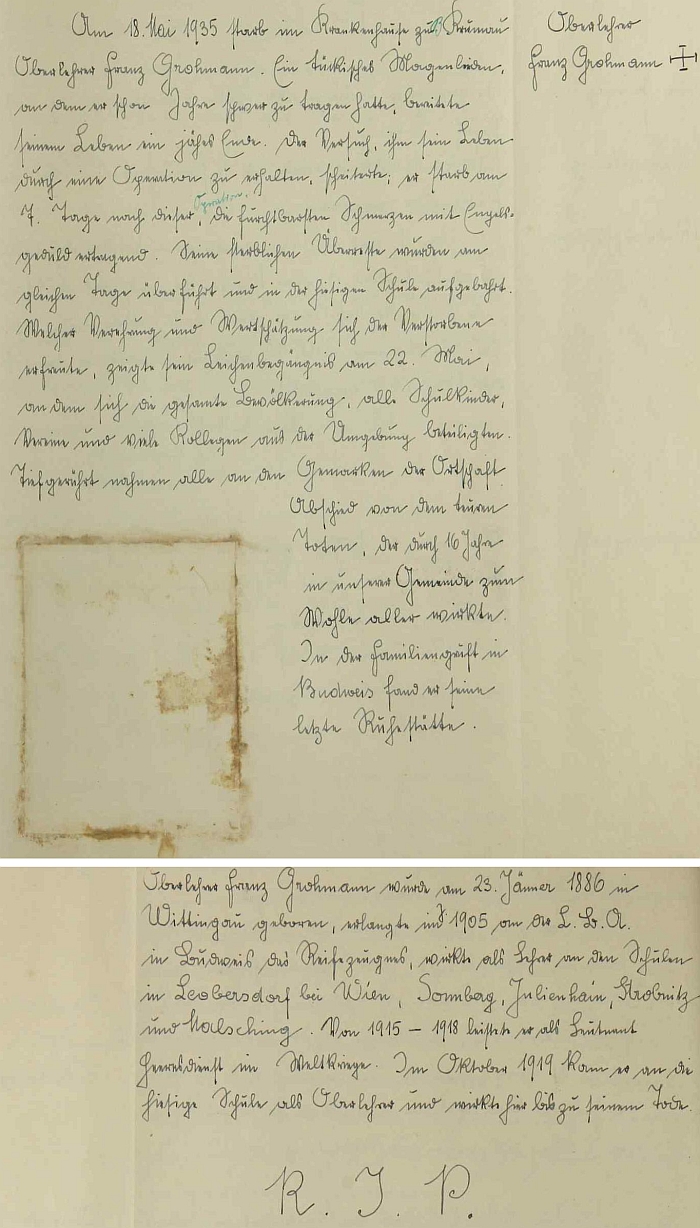 Am 18. Mai 1935 starb im Krankenhause zu Krumau
Oberlehrer Franz Grohmann. Ein tückisches Magenleiden,
an dem er schon Jahre schwer zu tragen hatte, bereitete
seinem Leben ein jähes Ende. Der Versuch, ihm sein Leben
durch eine Operation zu erhalten, scheiterte; er starb am
7. Tage nach dieser Operation, die furchtbarsten Schmerzen mit Engels-
geduld ertragend. Seine sterblichen Überreste wurden am
gleichen Tage überführt und in der hiesigen Schule aufgebahrt.
Welcher Verehrung und Wertschätzung sich der Verstorbene
erfreute, zeigte sein Leichenbegängnis am 22. Mai,
an dem sich die gesamte Bevölkerung, alle Schulkinder,
Vereine und viele Kollegen aus der Umgebung beteiligten.
Tiefgerührt nahmen alle an den Gemarken der Ortschaft
Abschied von dem teuren
Toten, der durch 16 Jahre
in unserer Gemeinde zum
Wohle aller wirkte.
In der Familiengruft in
Budweis fand er seine
letzte Ruhestätte.
Oberlehrer
Franz Grohmann
Oberlehrer Franz Grohmann wurde am 23. Jänner 1886 in
Wittingau geboren, erlangte im J. 1905 an der L. B. A.
in Budweis das Reifezeugnes, wirkte als Lehrer an den Schulen
in Leobersdorf bei Wien, Sonnberg, Julienhain, Strobnitz
und Malsching. Von 1915 – 1918 leistete er als Leutnant
Heeresdienst im Weltkriege. Im Oktober 1919 kam er an die
hiesige Schule als Oberlehrer und wirkte hier bis zu seinem Tode.
R. I. P.